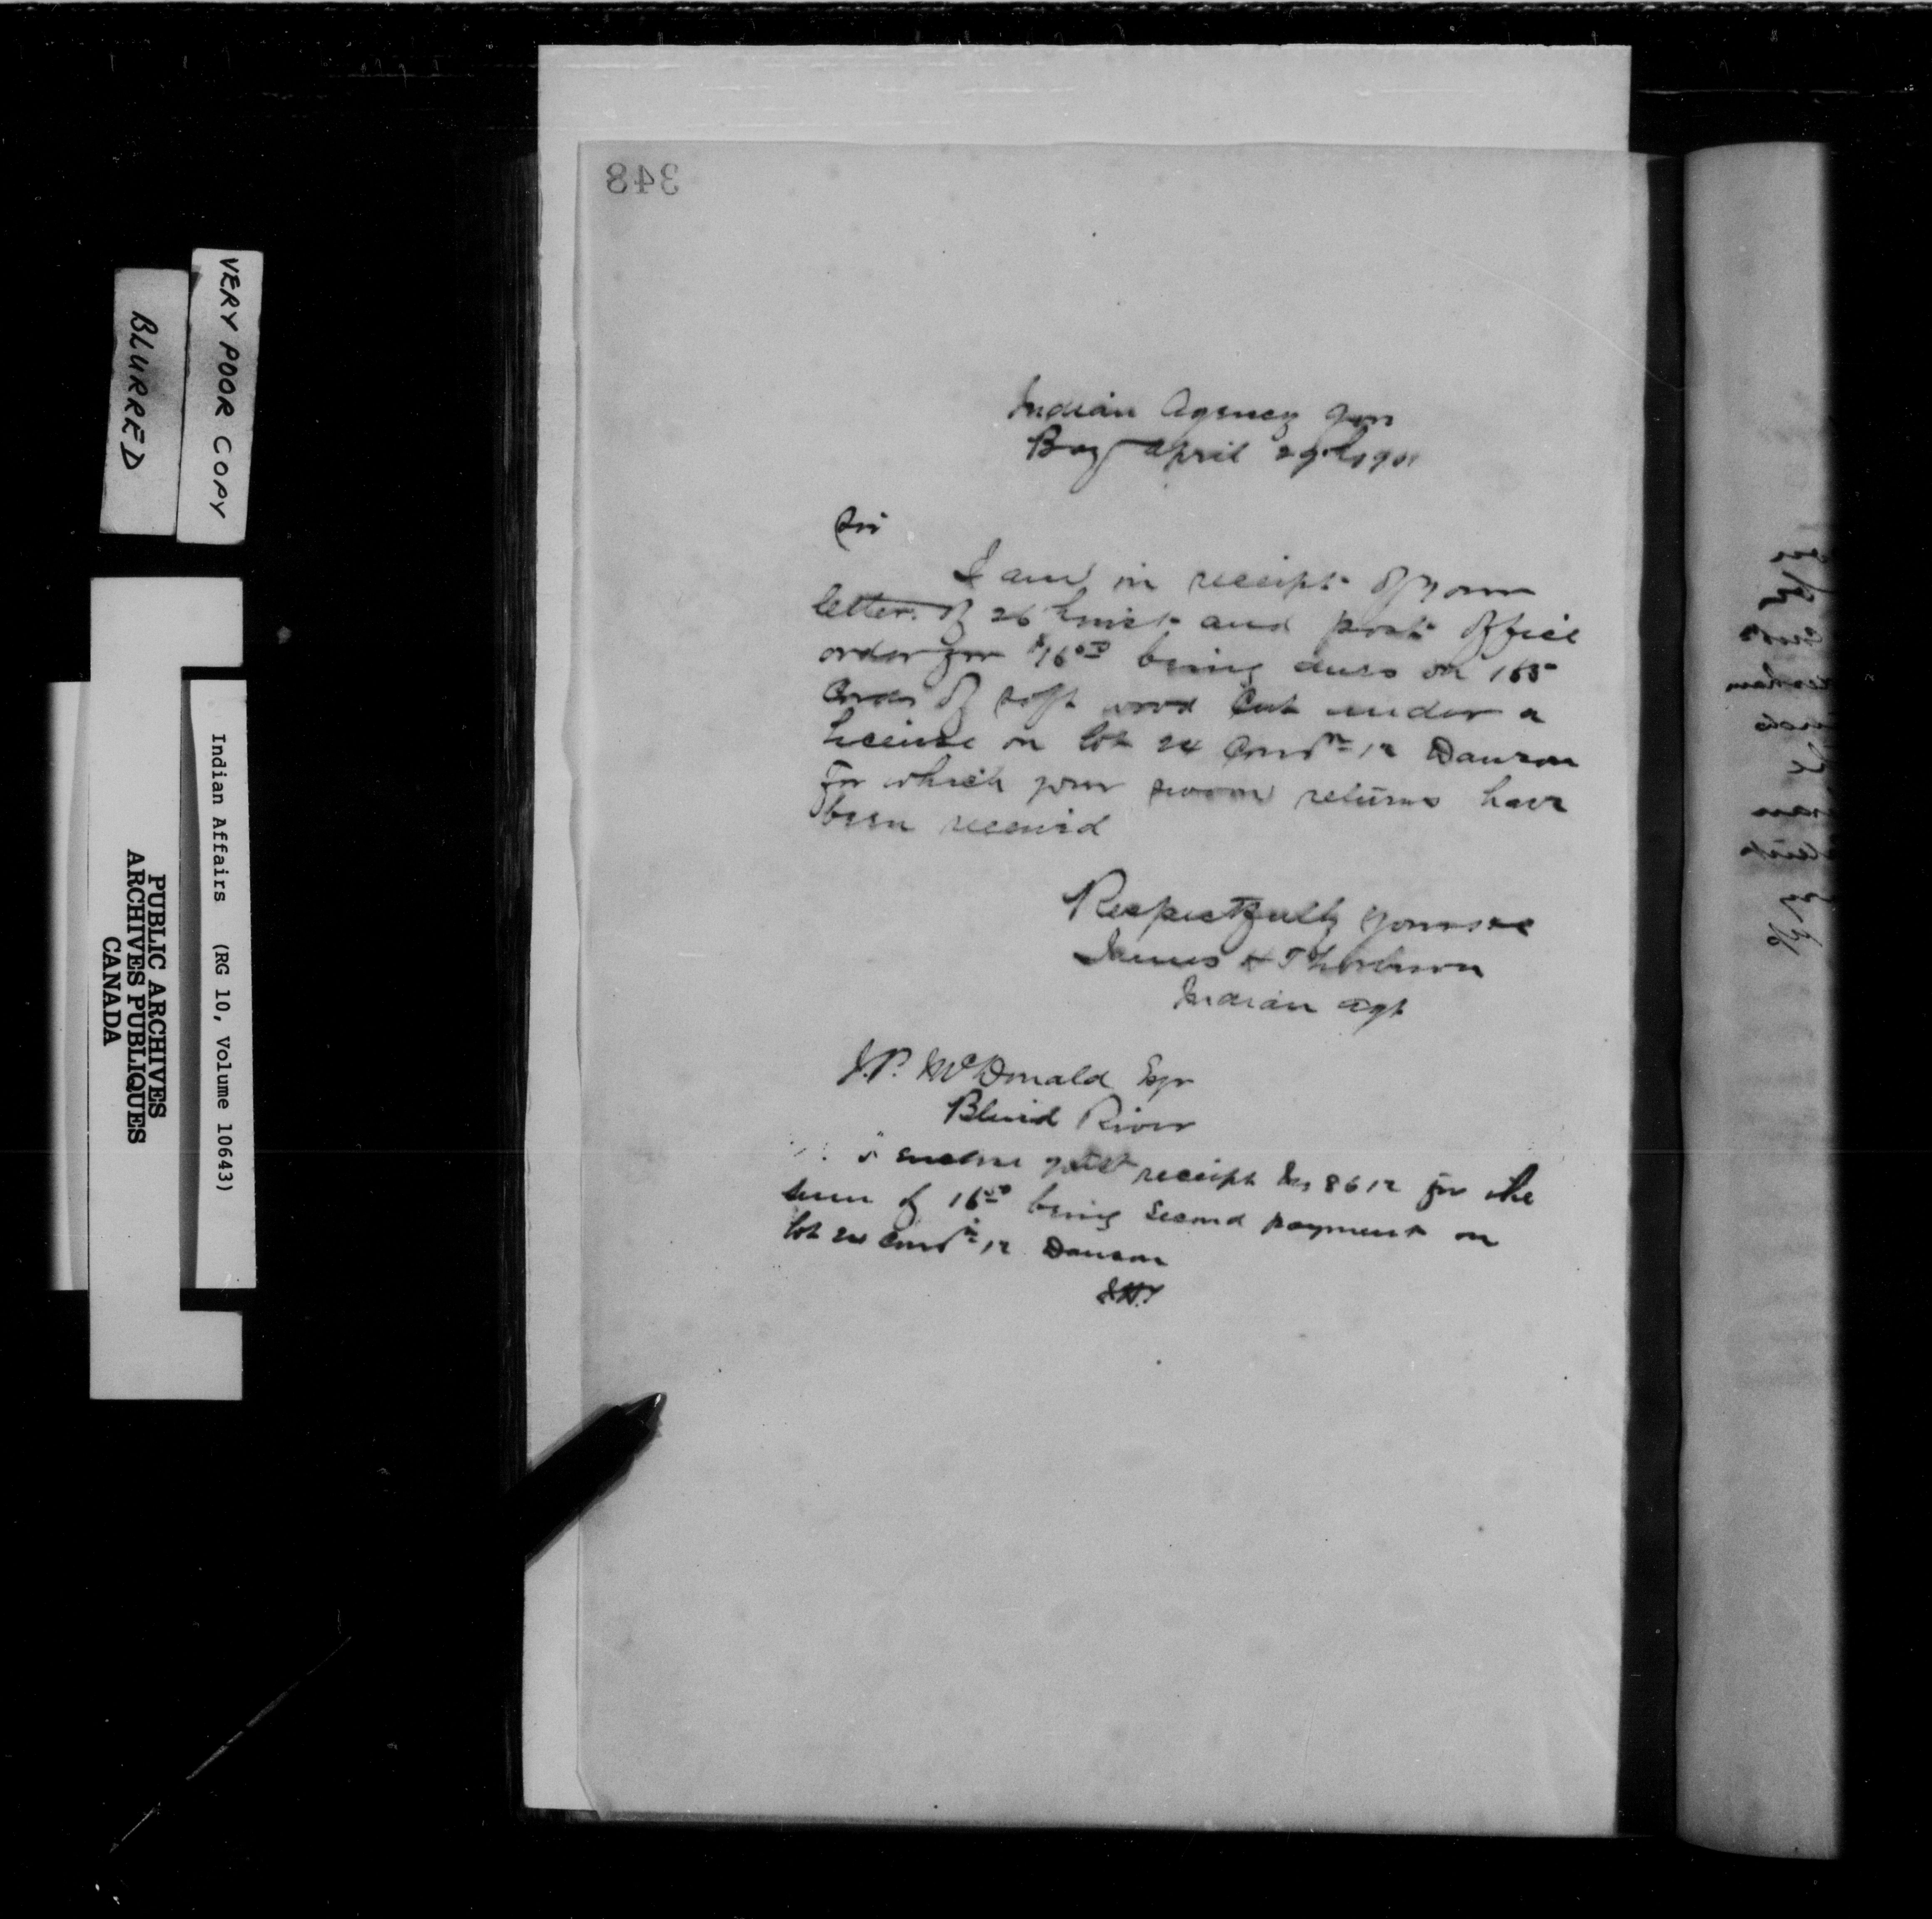 348
Indian Agency Gore
Bay April 29th 1901
Sir
I am in receipt of your
letter of 26th inst and post office
order for $16.50 being dues on 165
Cords of soft wood Cut under a
license on lot 24 Conn 12 Dawson
for which your sworn returns have
been received
Respectfully Yours
James H Thorburn
Indian Agt
J.P. McDonald Esqr
Blind River
I enclose receipt No 8612 for the
sum of 16.50 being Second payment on
lot 24 Conn 12 Dawson
JHT
VERY POOR COPY
BLURRED
Indian Affairs (RG 10, Volume 10643)
PUBLIC ARCHIVES
ARCHIVES PUBLIQUES
CANADA